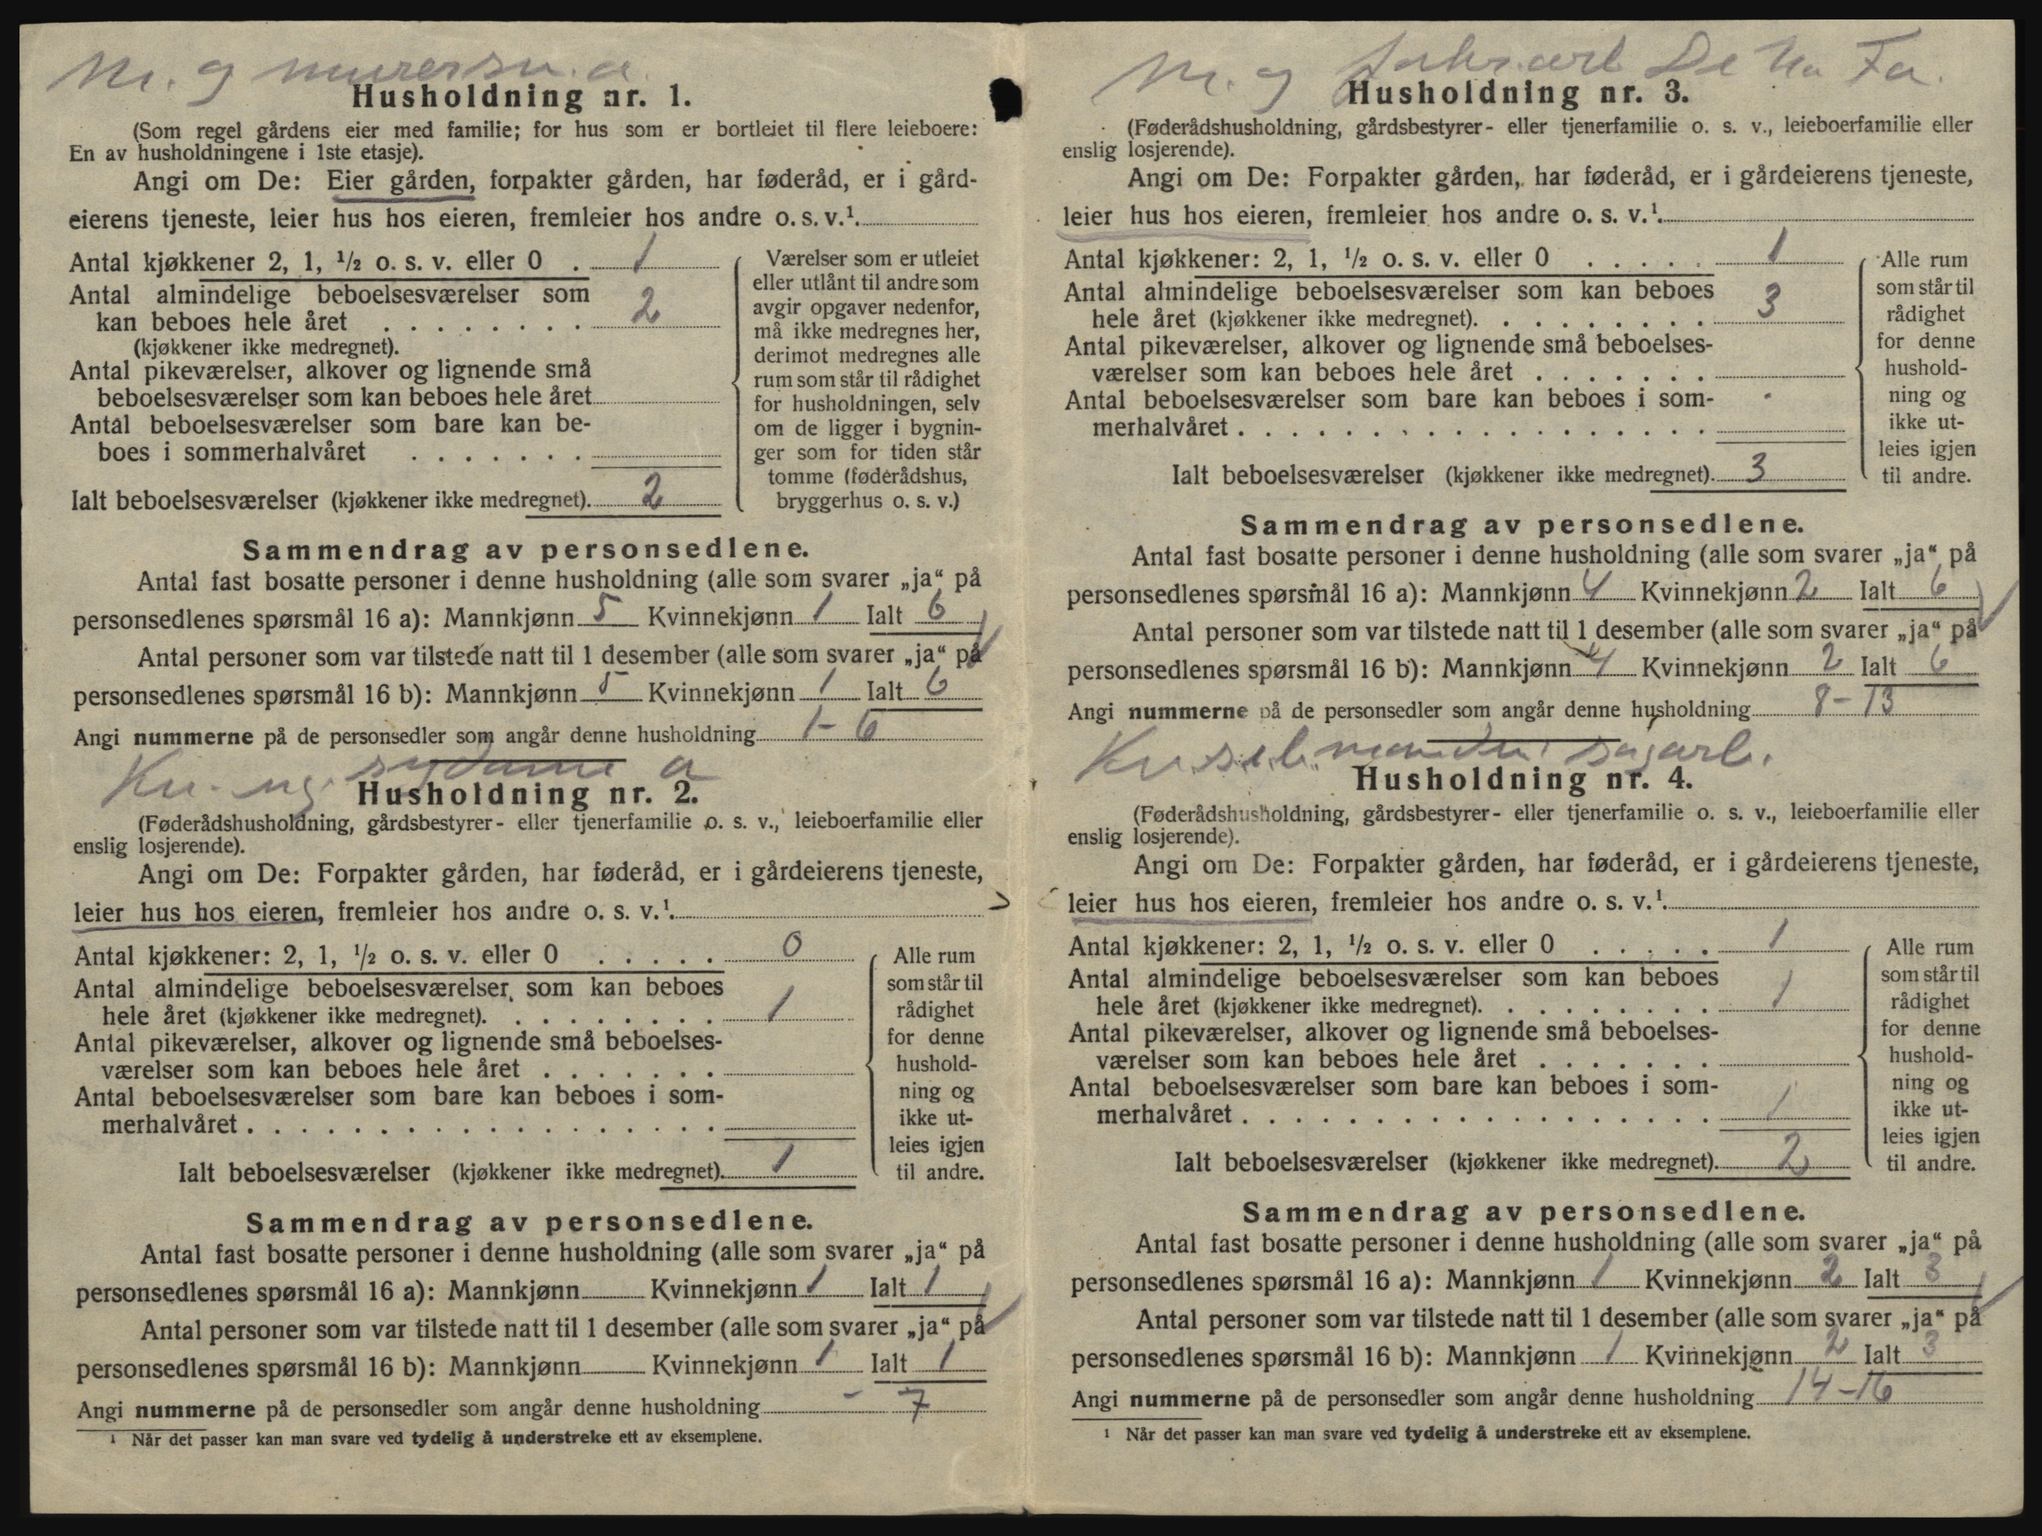 M. g murersv. a.
Husholdning nr. 1.
(Som regel gårdens eier med familie; for hus som er bortleiet til flere leieboere:
En av husholdningene i 1ste etasje).
Angi om De: Eier gården, forpakter gården, har føderåd, er i gård-
eierens tjeneste, leier hus hos eieren, fremleier hos andre o. s. v.¹.
Antal kjøkkener 2, 1, ½ o. s. v. eller 0 . 1
Antal almindelige beboelsesværelser som
kan beboes hele året . . . . . . . . 2
(kjøkkener ikke medregnet).
Antal pikeværelser, alkover og lignende små
beboelsesværelser som kan beboes hele året
Antal beboelsesværelser som bare kan be-
boes i sommerhalvåret . . . . . . .
Ialt beboelsesværelser (kjøkkener ikke medregnet). 2
Værelser som er utleiet
eller utlånt til andre som
avgir opgaver nedenfor,
må ikke medregnes her,
derimot medregnes alle
rum som står til rådighet
for husholdningen, selv
om de ligger i bygnin-
ger som for tiden står
tomme (føderådshus,
bryggerhus o. s. v.)
Sammendrag av personsedlene.
Antal fast bosatte personer i denne husholdning (alle som svarer „ja“ på
personsedlenes spørsmål 16 a): Mannkjønn 5 Kvinnekjønn 1 Ialt 6
Antal personer som var tilstede natt til 1 desember (alle som svarer „ja“ på
personsedlenes spørsmål 16 b): Mannkjønn 5 Kvinnekjønn 1 Ialt 6
Angi nummerne på de personsedler som angår denne husholdning 1-6
Kv. ug. sydame a
Husholdning nr. 2.
(Føderådshusholdning, gårdsbestyrer- eller tjenerfamilie o. s. v., leieboerfamilie eller
enslig losjerende).
Angi om De: Forpakter gården, har føderåd, er i gårdeierens tjeneste,
leier hus hos eieren, fremleier hos andre o. s. v.¹.
Antal kjøkkener: 2, 1, ½ o. s. v. eller 0 . . . . . 0
Antal almindelige beboelsesværelser som kan beboes
hele året (kjøkkener ikke medregnet). . . . . . . . . 1
Antal pikeværelser, alkover og lignende små beboelses-
værelser som kan beboes hele året . . . . . . .
Antal beboelsesværelser som bare kan beboes i som-
merhalvåret . . . . . . . . . . . . . . . . . .
Ialt beboelsesværelser (kjøkkener ikke medregnet). 1
Alle rum
som står til
rådighet
for denne
hushold-
ning og
ikke ut-
leies igjen
til andre.
Sammendrag av personsedlene.
Antal fast bosatte personer i denne husholdning (alle som svarer „ja“ på
personsedlenes spørsmål 16 a): Mannkjønn Kvinnekjønn 1 Ialt 1
Antal personer som var tilstede natt til 1 desember (alle som svarer „ja“ på
personsedlenes spørsmål 16 b): Mannkjønn Kvinnekjønn 1 Ialt 1
Angi nummerne på de personsedler som angår denne husholdning - 7
¹ Når det passer kan man svare ved tydelig å understreke ett av eksemplene.
M. g De Fa.
Husholdning nr. 3.
(Føderådshusholdning, gårdsbestyrer- eller tjenerfamilie o. s. v., leieboerfamilie eller
enslig losjerende).
Angi om De: Forpakter gården, har føderåd, er i gårdeierens tjeneste,
leier hus hos eieren, fremleier hos andre o. s. v.¹.
Antal kjøkkener: 2, 1, ½ o. s. v. eller 0 . . . . . 1
Antal almindelige beboelsesværelser som kan beboes
hele året (kjøkkener ikke medregnet). . . . . . . . . 3
Antal pikeværelser, alkover og lignende små beboelses-
værelser som kan beboes hele året . . . . . . .
Antal beboelsesværelser som bare kan beboes i som-
merhalvåret . . . . . . . . . . . . . . . . . .
Ialt beboelsesværelser (kjøkkener ikke medregnet). 3
Alle rum
som står til
rådighet
for denne
hushold-
ning og
ikke ut-
leies igjen
til andre.
Sammendrag av personsedlene.
Antal fast bosatte personer i denne husholdning (alle som svarer „ja“ på
personsedlenes spørsmål 16 a): Mannkjønn 4 Kvinnekjønn 2 Ialt 6
Antal personer som var tilstede natt til 1 desember (alle som svarer „ja“ på
personsedlenes spørsmål 16 b): Mannkjønn 4 Kvinnekjønn 2 Ialt 6
Angi nummerne på de personsedler som angår denne husholdning 8-13
sagarb.
Husholdning nr. 4.
(Føderådshusholdning, gårdsbestyrer- eller tjenerfamilie o. s. v., leieboerfamilie eller
enslig losjerende).
Angi om De: Forpakter gården, har føderåd, er i gårdeierens tjeneste,
leier hus hos eieren, fremleier hos andre o. s. v.¹.
Antal kjøkkener: 2, 1, ½ o. s. v. eller 0 . . . . . 1
Antal almindelige beboelsesværelser som kan beboes
hele året (kjøkkener ikke medregnet). . . . . . . . . 1
Antal pikeværelser, alkover og lignende små beboelses-
værelser som kan beboes hele året . . . . . . .
Antal beboelsesværelser som bare kan beboes i som-
merhalvåret . . . . . . . . . . . . . . . . . . 1
Ialt beboelsesværelser (kjøkkener ikke medregnet). 2
Alle rum
som står til
rådighet
for denne
hushold-
ning og
ikke ut-
leies igjen
til andre.
Sammendrag av personsedlene.
Antal fast bosatte personer i denne husholdning (alle som svarer „ja“ på
personsedlenes spørsmål 16 a): Mannkjønn 1 Kvinnekjønn 2 Ialt 3
Antal personer som var tilstede natt til 1 desember (alle som svarer „ja“ på
personsedlenes spørsmål 16 b): Mannkjønn 1 Kvinnekjønn 2 Ialt 3
Angi nummerne på de personsedler som angår denne husholdning 14-16
¹ Når det passer kan man svare ved tydelig å understreke ett av eksemplene.